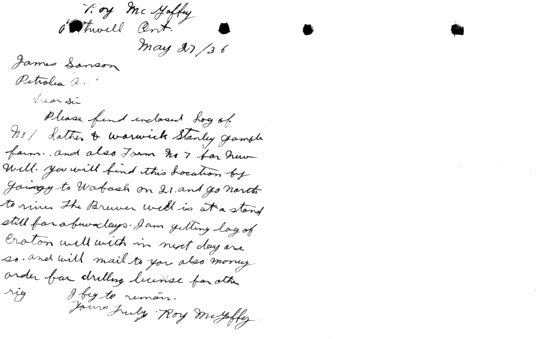 Roy McGaffey
Bothwell Ont.
May 27/36
James Sanson
Petrolia
Dear Sir
Please find enclosed Log of
No 1 Lather & Warwick Stanley gamble
farm. and also Form No 7 for New
Well. you will find this Location by
going to Wabash on 21. and go North
to river The Brewer well is at a stand
still for a few days. I am getting log of
Croton well with in next day are
so. and will mail to you also money
order for drilling license for other
rig I beg to remain.
Yours truly Roy McGaffey